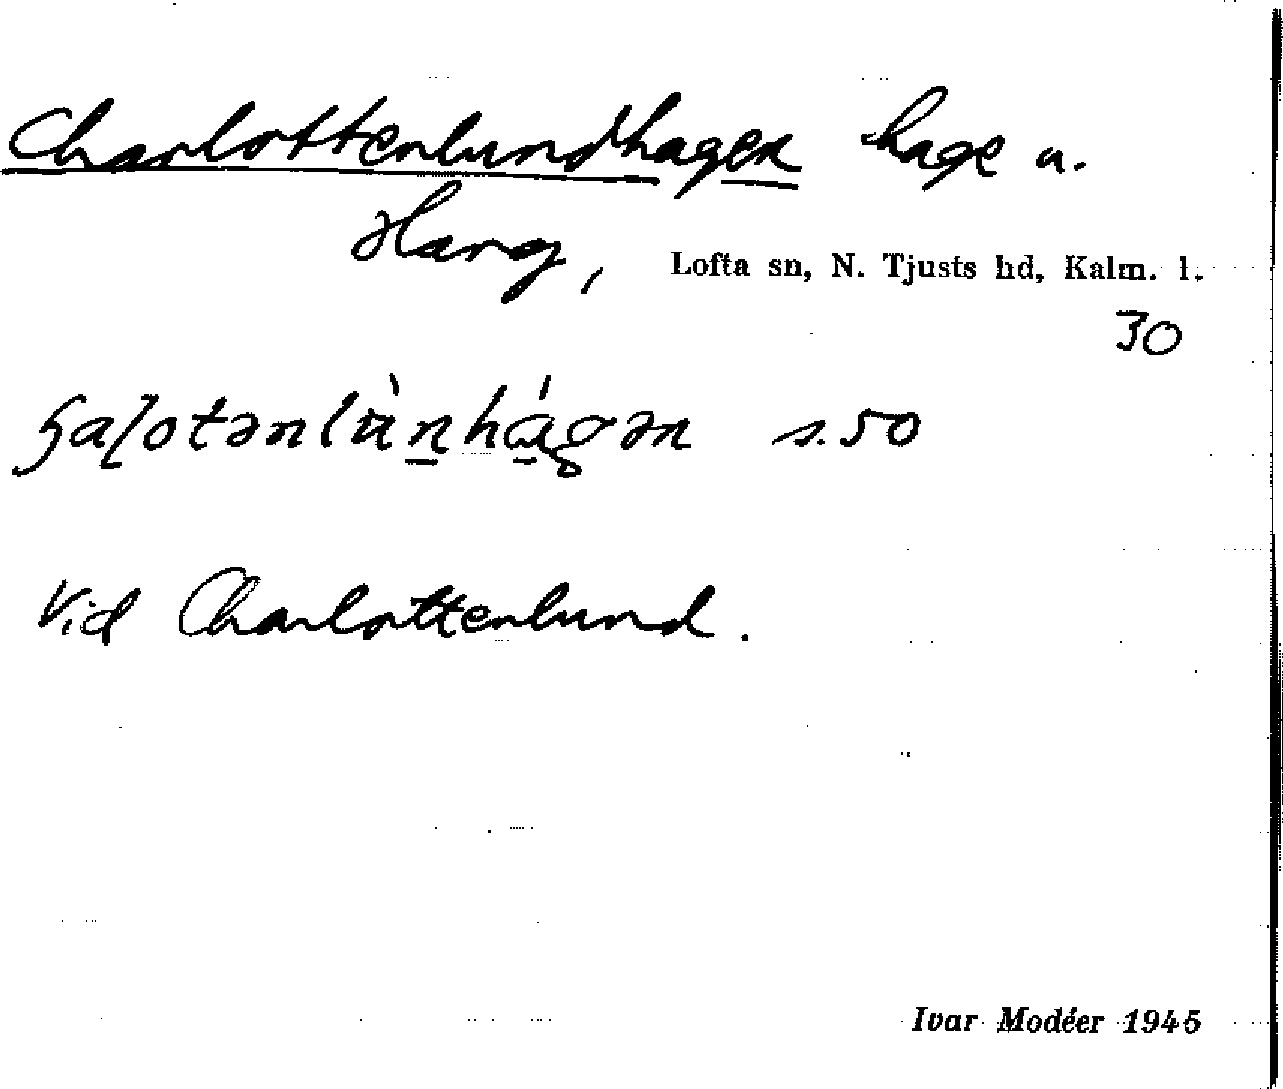 Charlottenlundhagen hage u.
Hang, Lofta sn, N. Tjusts hd, Kalm. l.
30
s. 50
Vid Charlottenlund.
Ivar Modéer 1945